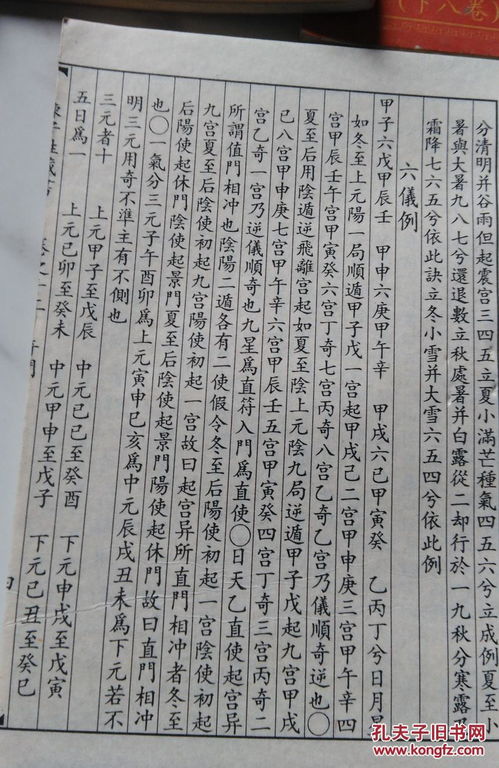 (下八卷)
分清明并谷雨但起震宫三四五立夏小滿芒種氣四五六兮立成例夏至小
暑與大暑九八七兮還退數立秋處暑并白露從二却行於一九秋分寒露
霜降七六五兮依此訣立冬小雪并大雪六五四兮依此例
六儀例
甲子六戊甲辰壬 甲申六庚甲午辛 甲戌六己甲寅癸 乙丙丁兮日月星
如冬至上元陽一局順遁甲子戊一宫起甲戌己二宫甲申庚三宫甲午辛四
宫甲辰壬午宫甲寅癸六宫丁奇七宫丙奇八宫乙奇乙宫乃儀順奇逆也〇
夏至后用陰遁逆飛離宫起如夏至陰上元陰九局逆遁甲子戊起九宫甲戌
己八宫甲申庚七宫甲午辛六宫甲辰壬五宫甲寅癸四宫丁奇三宫丙奇二
宫乙奇一宫乃逆儀順奇也九星爲直符入門爲直使〇日天乙直使起宫异
所謂值門相冲也陰陽二遁各有二使假令冬至后陽使初起一宫陰使初起
九宫夏至后陰使初起九宫陽使初起一宫故曰起宫异所直門相冲者冬至
后陽使起休門陰使起景門夏至后陰使起景門陽使起休門故曰直門相冲
也〇一氣分三元子午酉卯爲上元寅申巳亥爲中元辰戌丑未爲下元若不
明三元用奇不準主有不側也
三元者十 上元甲子至戊辰 中元己巳至癸酉 下元甲戌至戊寅
五日爲一 上元己卯至癸未 中元甲申至戊子 下元己丑至癸巳
孔夫子旧书网
www.kongfz.com